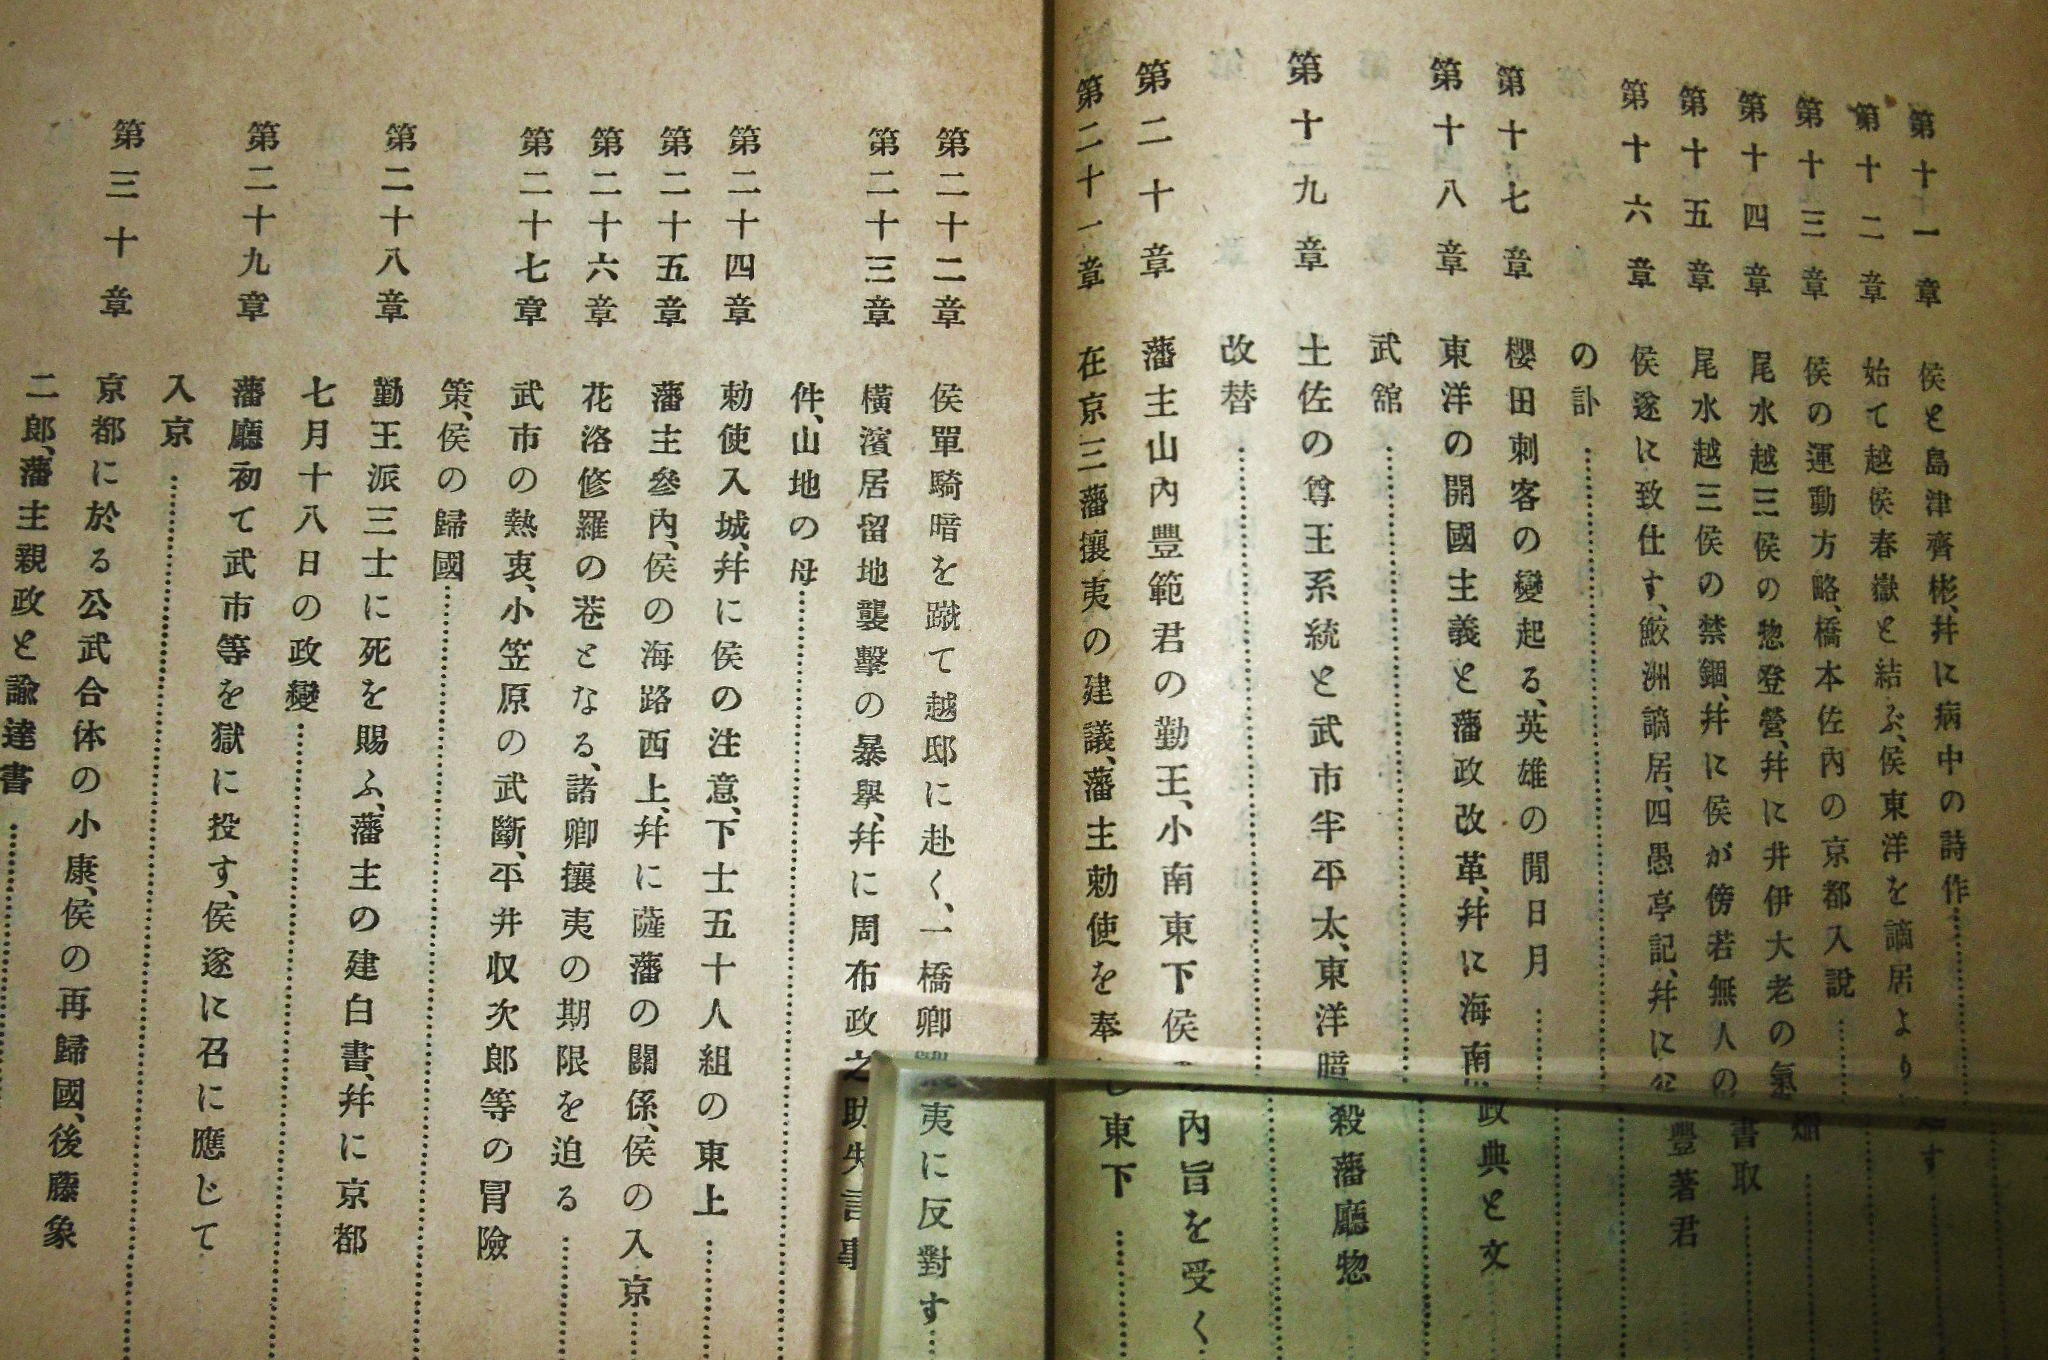 第十一章 侯と島津齊彬、幷に病中の詩作
第十二章 始て越侯春嶽と結ぶ、侯東洋を謫居より
第十三章 侯の運動方略、橋本佐內の京都入說
第十四章 尾水越三侯の惣登營、幷に井伊大老の氣焔
第十五章 尾水越三侯の禁錮、幷に侯が傍若無人の書取
第十六章 侯遂に致仕す、鮫洲謫居、四愚亭記、幷に 豐著君
の訃
第十七章 櫻田刺客の變起る、英雄の閒日月
第十八章 東洋の開國主義と藩政改革、幷に海南政典と文
武舘
第十九章 土佐の尊王系統と武市半平太、東洋暗殺藩廳惣
改替
第二十章 藩主山內豐範君の勤王、小南東下侯の內旨を受く
第二十一章 在京三藩攘夷の建議、藩主勅使を奉じ東下
第二十二章 侯單騎暗を蹴て越邸に赴く、一橋卿 夷に反對す
第二十三章 橫濱居留地襲擊の暴擧、幷に周布政之助失言事
件、山地の母
第二十四章 勅使入城、幷に侯の注意、下士五十人組の東上
第二十五章 藩主參內、侯の海路西上、幷に薩藩の關係、侯の入京
第二十六章 花洛修羅の巷となる、諸卿攘夷の期限を迫る
第二十七章 武市の熱衷、小笠原の武斷、平井収次郎等の冒險
策、侯の歸國
第二十八章 勤王派三士に死を賜ふ、藩主の建白書、幷に京都
七月十八日の政變
第二十九章 藩廳初て武市等を獄に投す、侯遂に召に應じて
入京
第三十章 京都に於る公武合体の小康、侯の再歸國、後藤象
二郎、藩主親政と諭達書